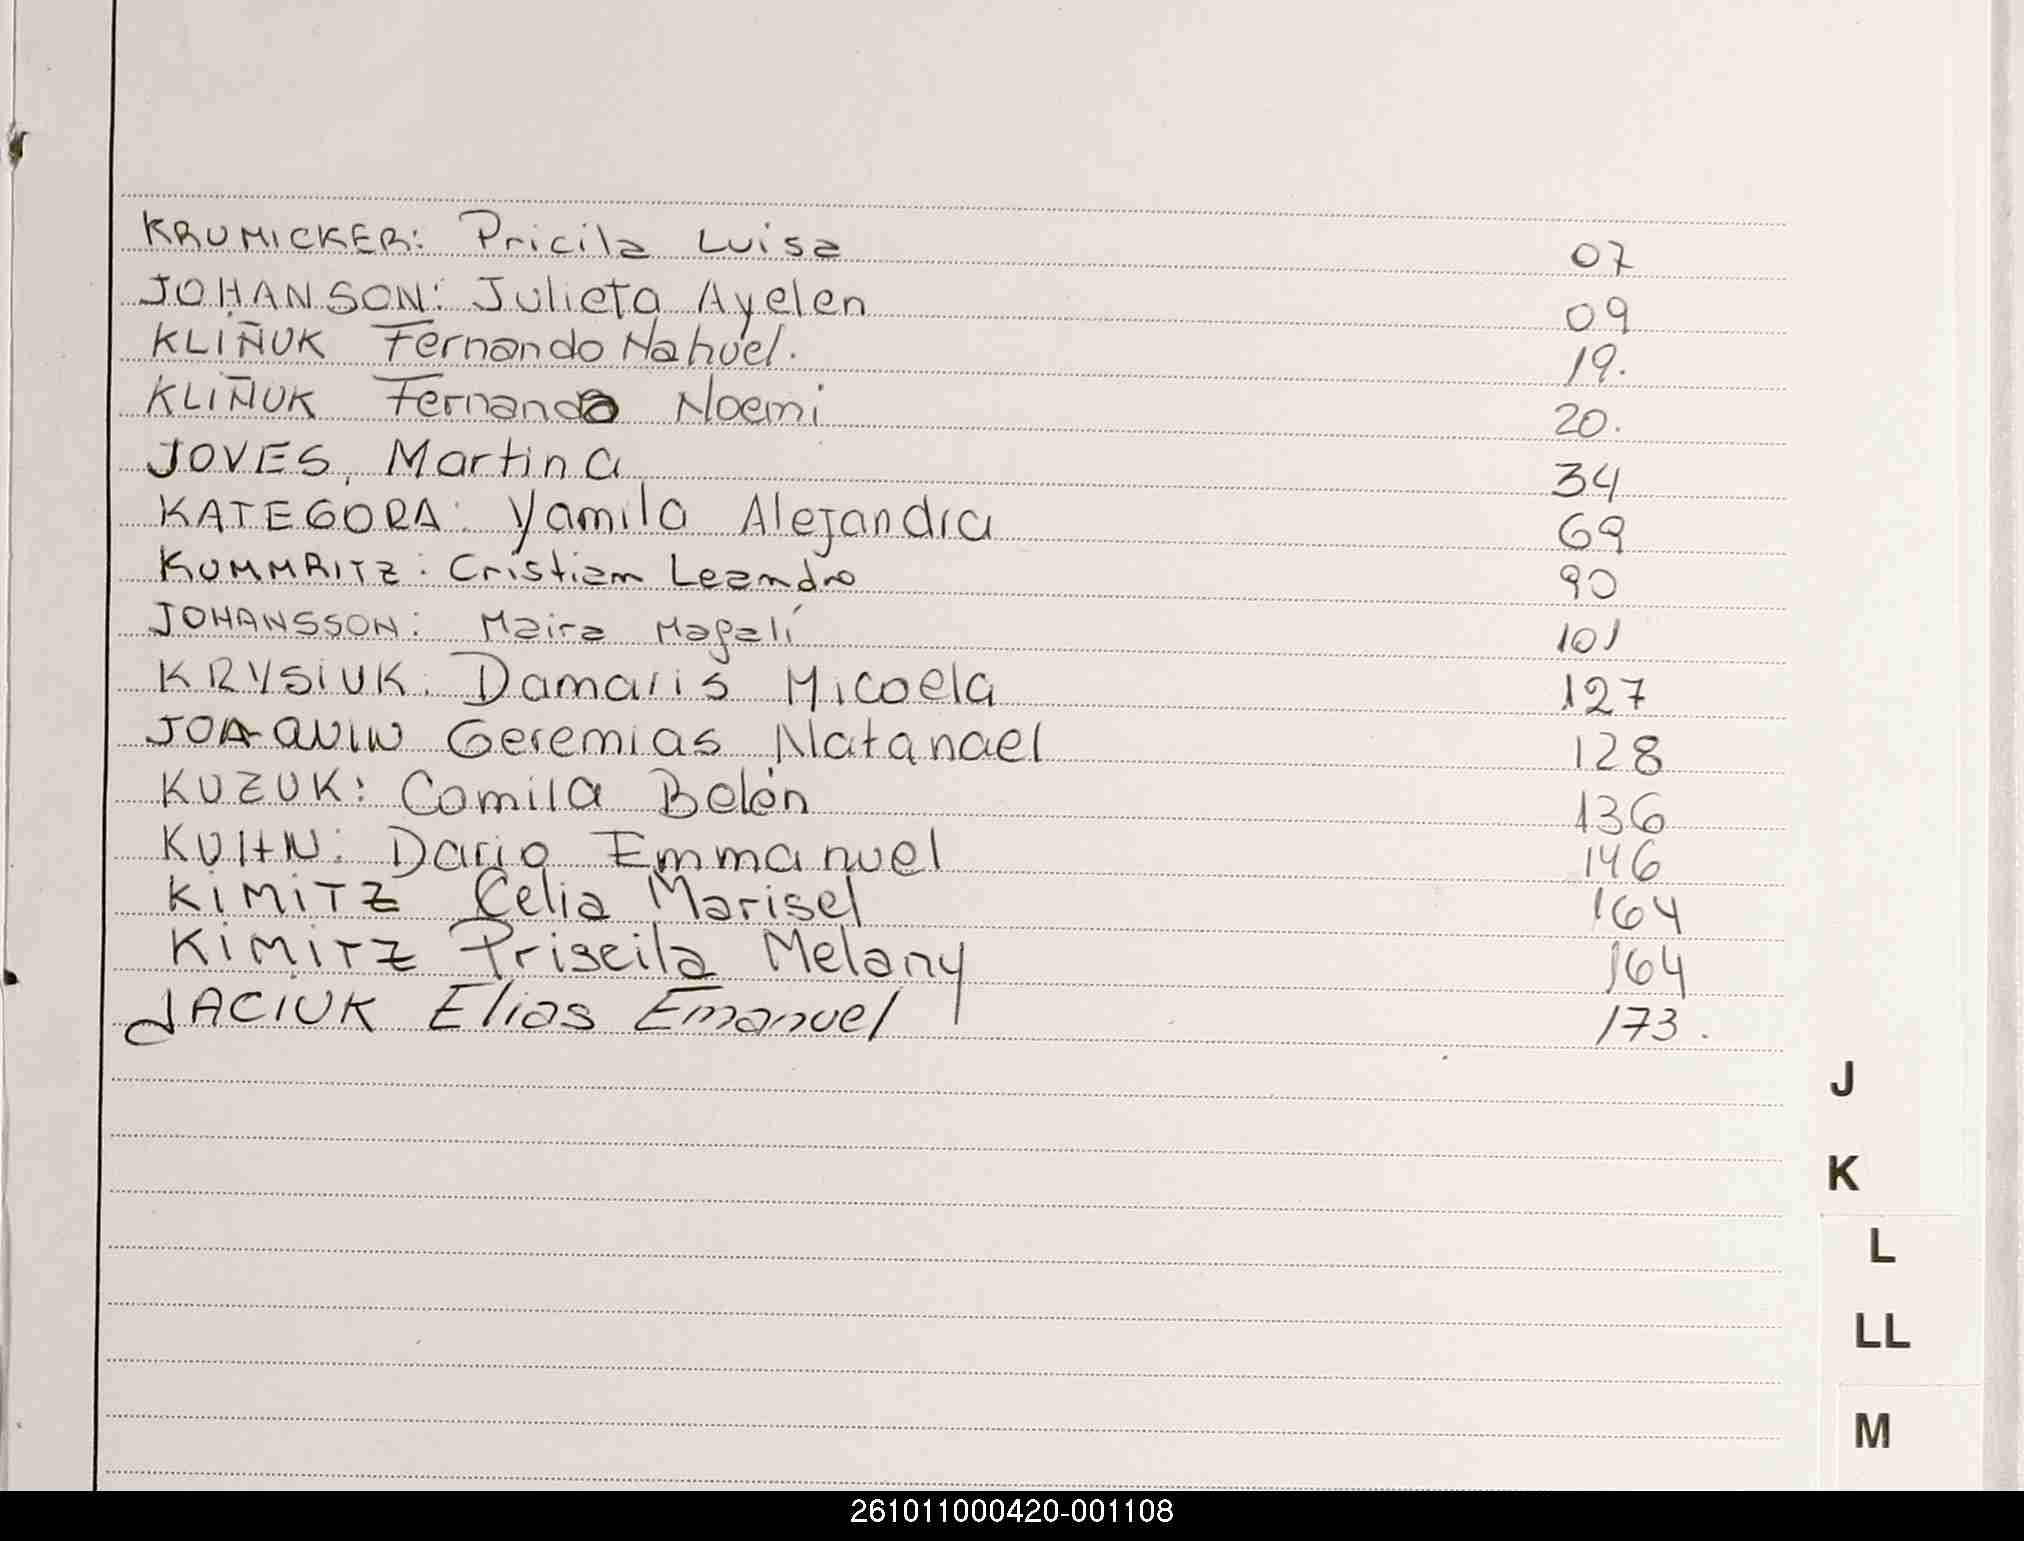 KRUMICKER: Pricila Luisa 07
JOHANSON: Julieta Ayelen 09
KLIÑUK Fernando Nahuel. 19.
KLIÑUK Fernanda Noemi 20.
JOVES, Martina 34
KATEGORA: Yamila Alejandra 69
KUMMRITZ: Cristian Leandro 90
JOHANSSON: Maira Magalí 101
KRYSIUK: Damaris Micaela 127
JOAQUIN Geremias Natanael 128
KUZUK: Camila Belén 136
KUHN: Dario Emmanuel 146
KIMITZ Celia Marisel 164
KIMITZ Priscila Melany 164
JACIUK Elias Emanuel 173.
J
K
L
LL
M
261011000420-001108